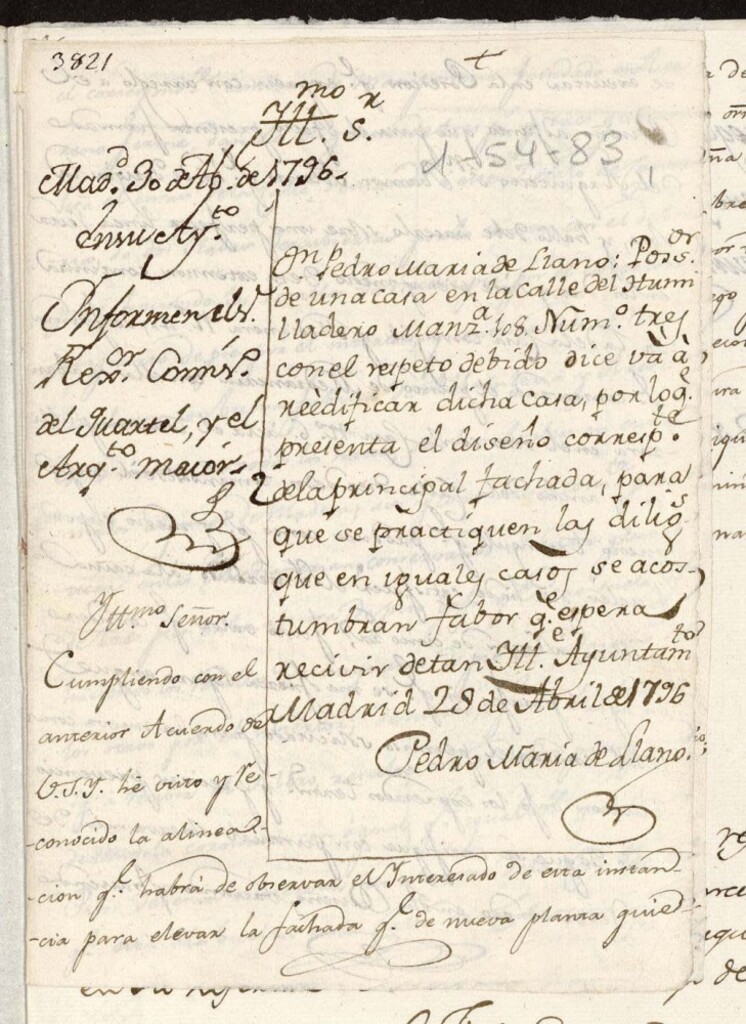 3821
+
Ill.mo S.r
1-54-83
Mad.d 30 de Ap. de 1796.
En su Ay.to
Informen el S.r
Rex.or Comis.o
del Quartel, y el
Arq.to maior
D.n Pedro Maria de Llano: Pos.or
de una casa en la calle del Humi
lladero Manz.a 108. Num.o tres
con el respeto debido dice và à
reèdificar dicha casa, por lo q.e
presenta el diseño corresp.te
de la principal fachada, para
que se practiquen las dilig.s
que en iguales casos se acos
tumbran fabor q.e espera
recivir de tan Ill.e Ayuntam.to
Madrid 28 de Abril de 1796
Pedro Maria de Llano
Yltt.mo Señor.
Cumpliendo con el
anterior Acuerdo de
V.S.Y. hè visto y re
conocido la alinea-
-cion q.e habrà de observar el Interesado de esta instan-
-cia para elevar la fachada q.e de nueva planta quiere